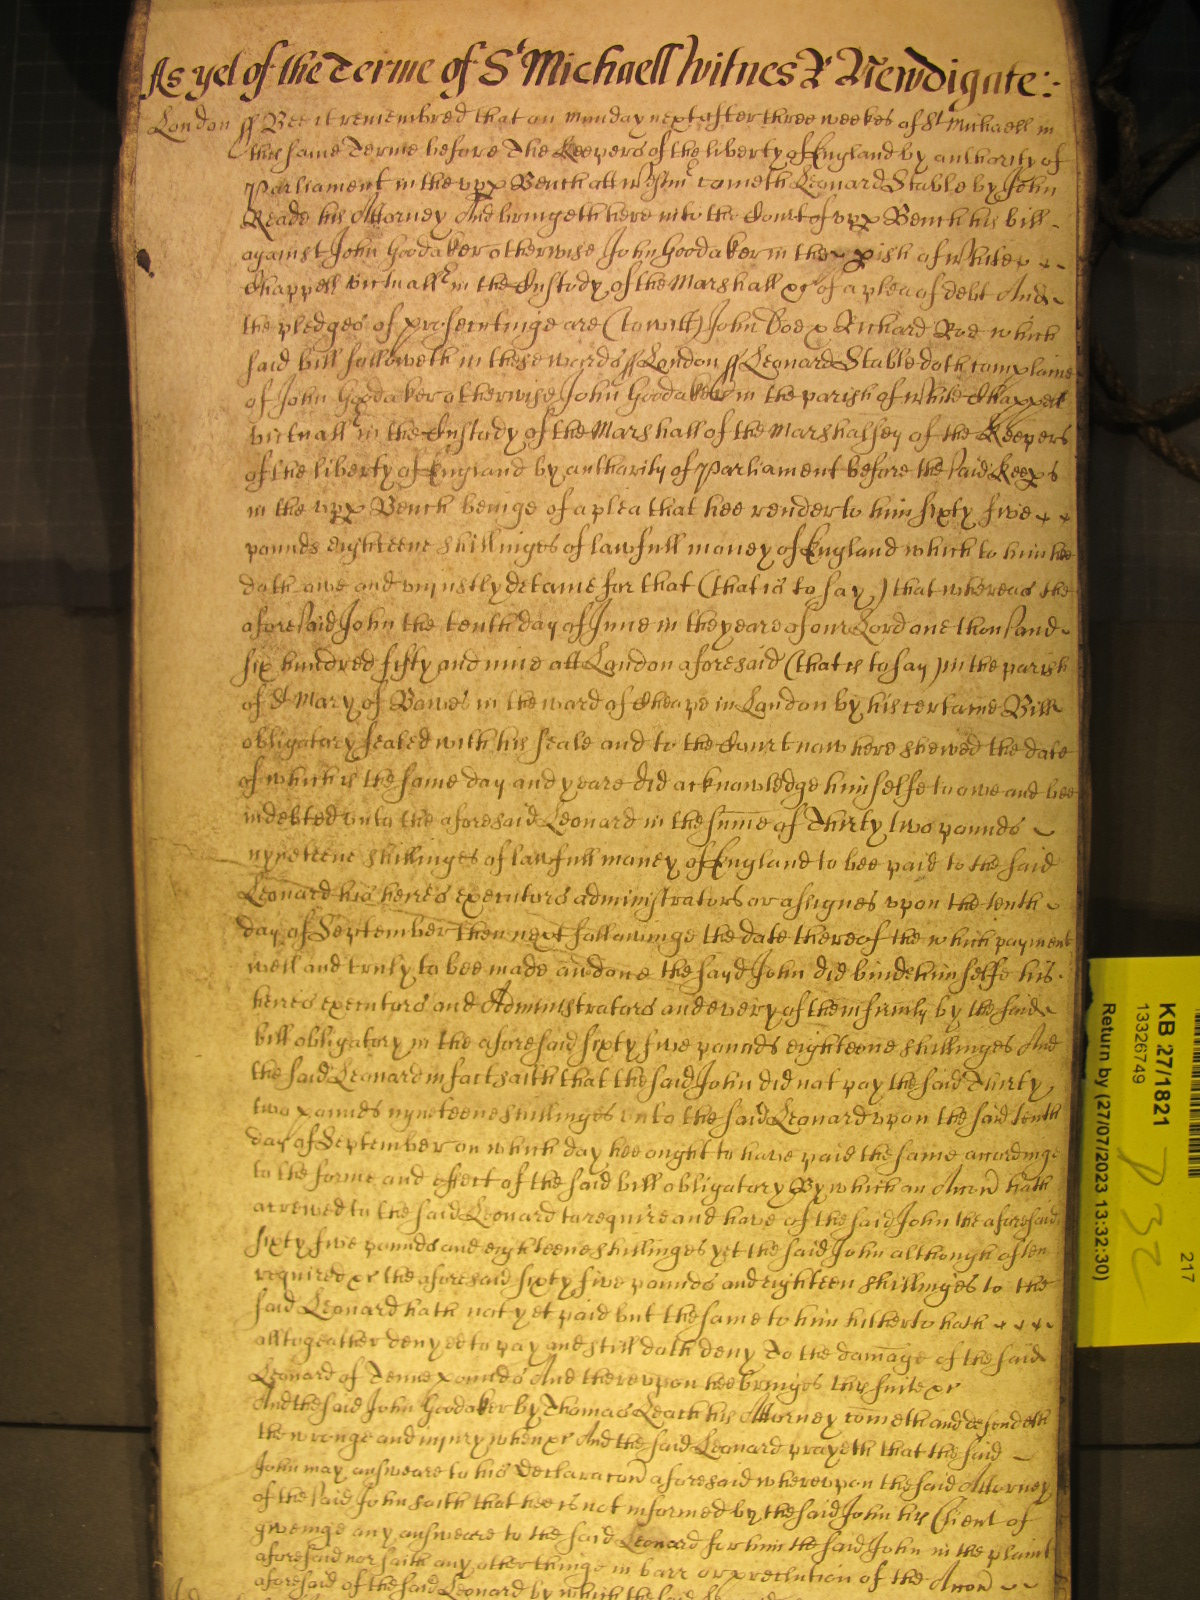 As yet of the Terme of St Michaell Witnes R Newdigate:-
London ss Bee it remembred that on munday next after three weekes of St Michaell in
this same Terme before The Keepers of the liberty of England by authority of
Parliament in the upp Bench att cometh Leonard Stable by John
Reade his Attorney And bringeth here into the Court of upp Bench his bill
against John Goodaker otherwise John Goodaker in the pish of White
Chappell victuallr in the Custody of the Marshall &c of a plea of debt And
the pledges of prosecutinge are (to witt) John Doe & Richard Roe which
said bill followeth in these words ss London ss Leonard Stable doth complaine
of John Goodaker otherwise John Goodaker in the parish of White Chappell
victuallr in the Custody of the Marshall of the Marshalsey of the Keepers
of the liberty of England by authority of Parliament before the said Keeps
in the upp Bench beinge of a plea that hee render to him sixty five
pounds eighteene shillinges of lawfull money of England which to him hee
doth owe and uniustly detaine for that (that is to say) that whereas the
aforesaid John the tenth day of June in the yeare of our Lord one thousand
six hundred fifty and nine att London aforesaid (that is to say) in the parish
of St Mary of Bowes in the ward of Cheape in London by his certaine Bill
obligatory sealed with his seale and to the Court now here shewed the date
of which is the same day and yeare did acknowledge himselfe to owe and bee
indebted unto the aforesaid Leonard in the sume of Thirty two pounds
nyneteene shillinges of lawfull money of England to bee paid to the said
Leonard his heires executors administrators or assignes upon the tenth
day of September then next followinge the date thereof the which payment
well and truly to bee made and done the sayd John did binde himselfe his
heires executors and Administrators and every of them firmly by the said
bill obligatory in the aforesaid sixty five pounds eighteene shillinges And
the said Leonard in fact saith that the said John did not pay the said Thirty
two pounds nyneteene shillinges unto the said Leonard upon the said tenth
day of September on which day hee ought to have paid the same accordinge
to the forme and effect of the said bill obligatory By which an Accon hath
accrewed to the said Leonard to require and have of the said John the aforesaid
sixty five pounds and eighteene shillinges yet the said John although often
required &c the aforesaid sixty five pounds and eighteen shillinges to the
said Leonard hath not yet paid but the same to him hitherto hath
alltogeather denyed to pay and still doth deny To the damage of the said
Leonard of Tenne pounds And thereupon hee bringes this suite &c
And the said John Goodaker by Thomas Leach his Attorney cometh and defendeth
the wronge and iniury when &c And the said Leonard prayeth that the said
John may answeare to his declaracon aforesaid whereupon the said Attorney
of the said John saith that hee is not informed by the said John his Client of
giveinge any answeare to the said Leonard for him the said John in the plaint
aforesaid nor saith any other thinge in barr or preclution of the Accon
aforesaid of the said Leonard by which the said
KB 27/1821
13326749
Return by (27/07/2023 13:32:30)
217
P 32